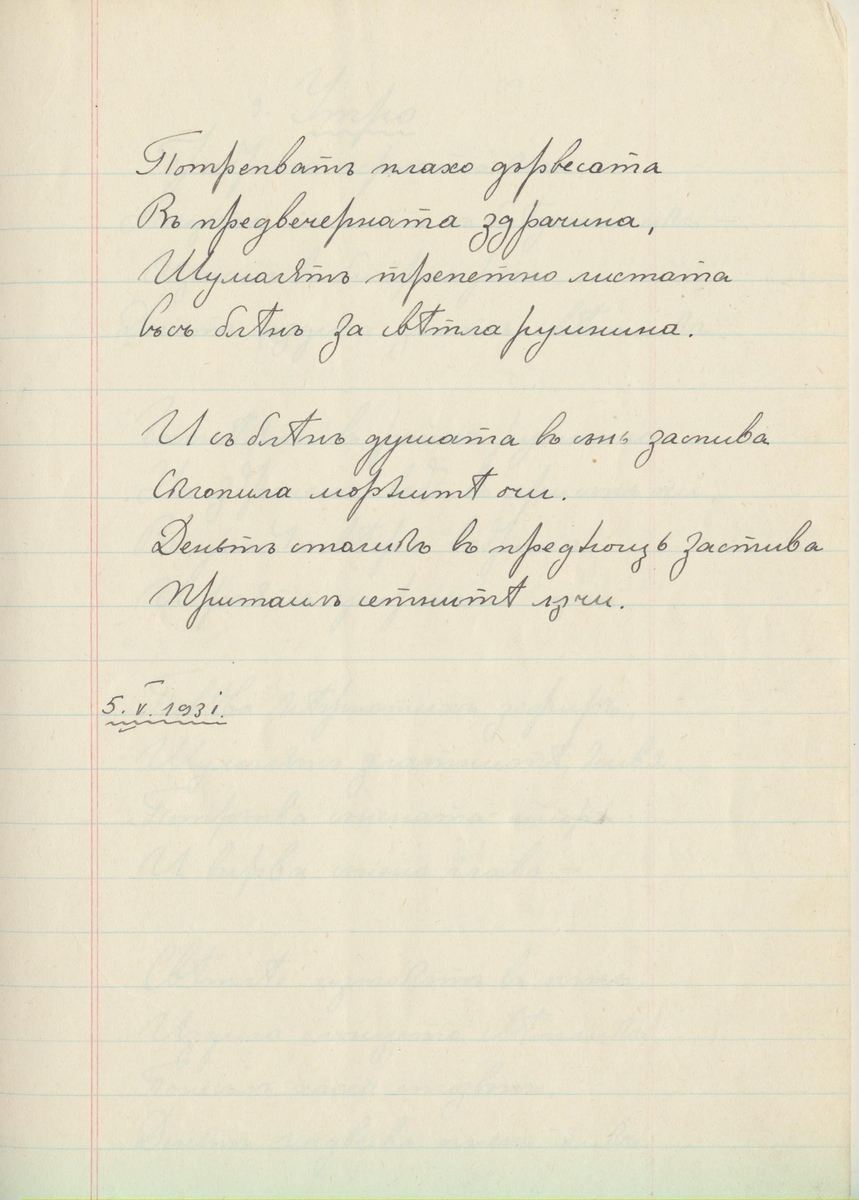 Потрепватъ плахо дървесата
Въ предвечерната здрачина,
Шумолѭтъ трепетно листата
въ съ блѣнъ за свѣтла румнина.
И съ блѣнъ душата въ сънь заспива
Склопила морнитѣ очи.
Деньтъ стаилъ въ предънощь застива
Притаилъ сетнитѣ лѫчи.
5. V. 1931.